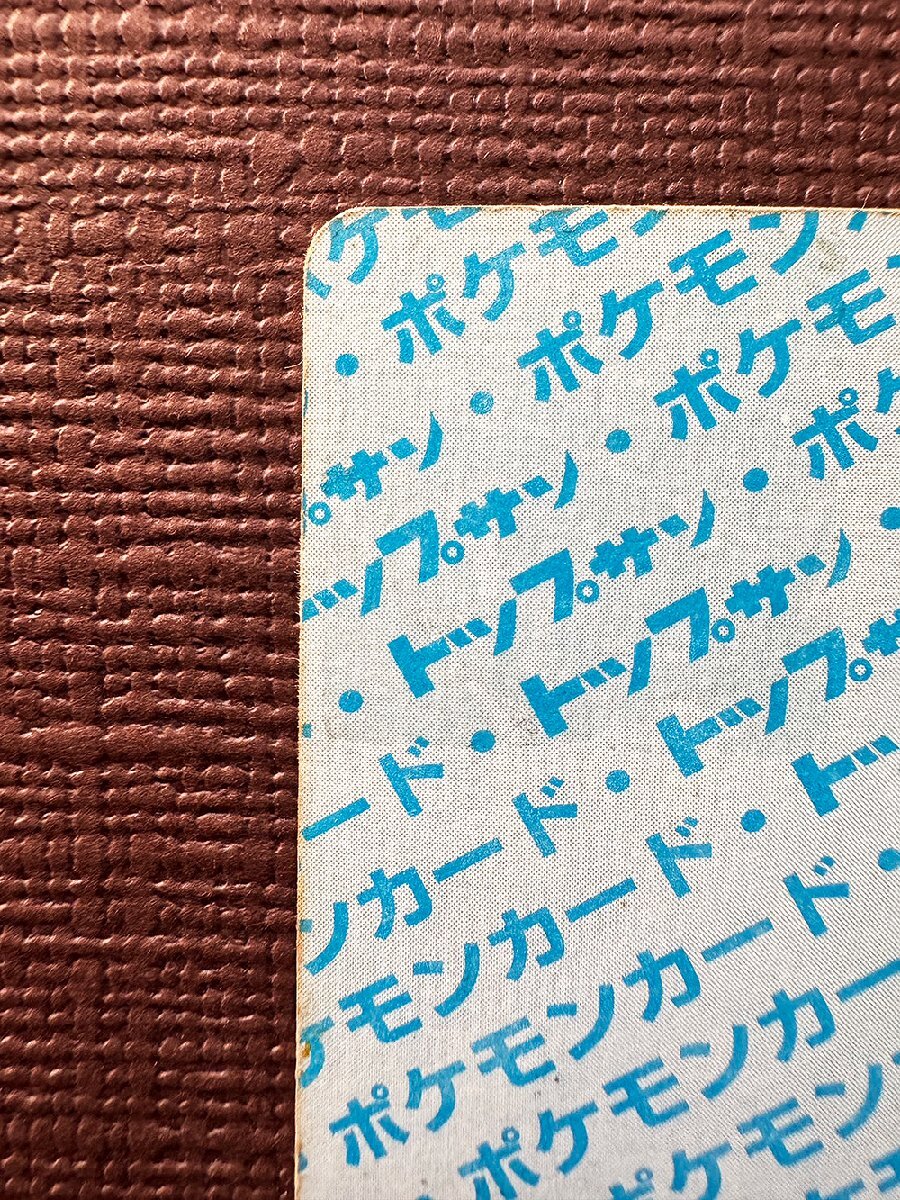 ケモ
・ポケモン
プサン・ポケモン
トップサン・ポケモ
・トップサン・ポケ
ード・トップサン・
ンカード・トップサ
ケモンカード・トッ
ポケモンカード・
・ポケモンカー
ポケモン